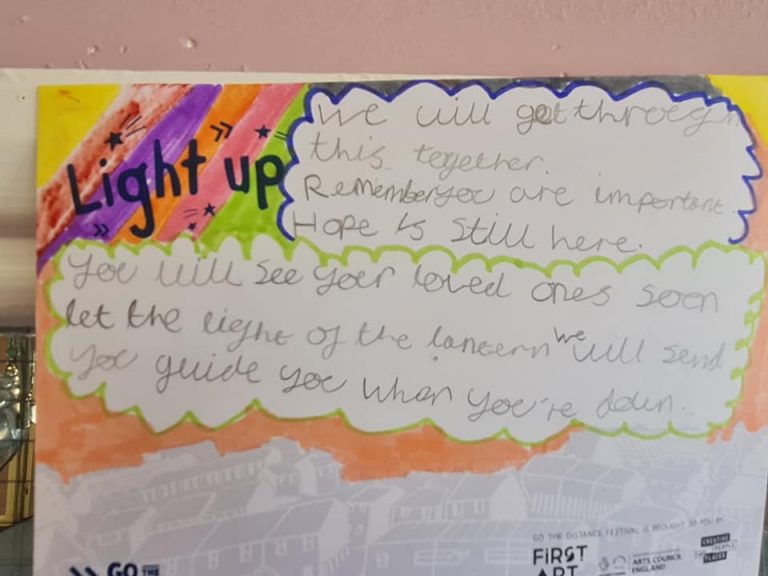 Light up
We will get through
this together.
Remember you are important.
Hope is still here.
You will see your loved ones soon
let the light of the lantern we will send
you guide you when you're down.
GO THE DISTANCE FESTIVAL IS BROUGHT TO YOU BY
GO THE
FIRST
ART
ARTS COUNCIL
ENGLAND
CREATIVE
PEOPLE
PLACES